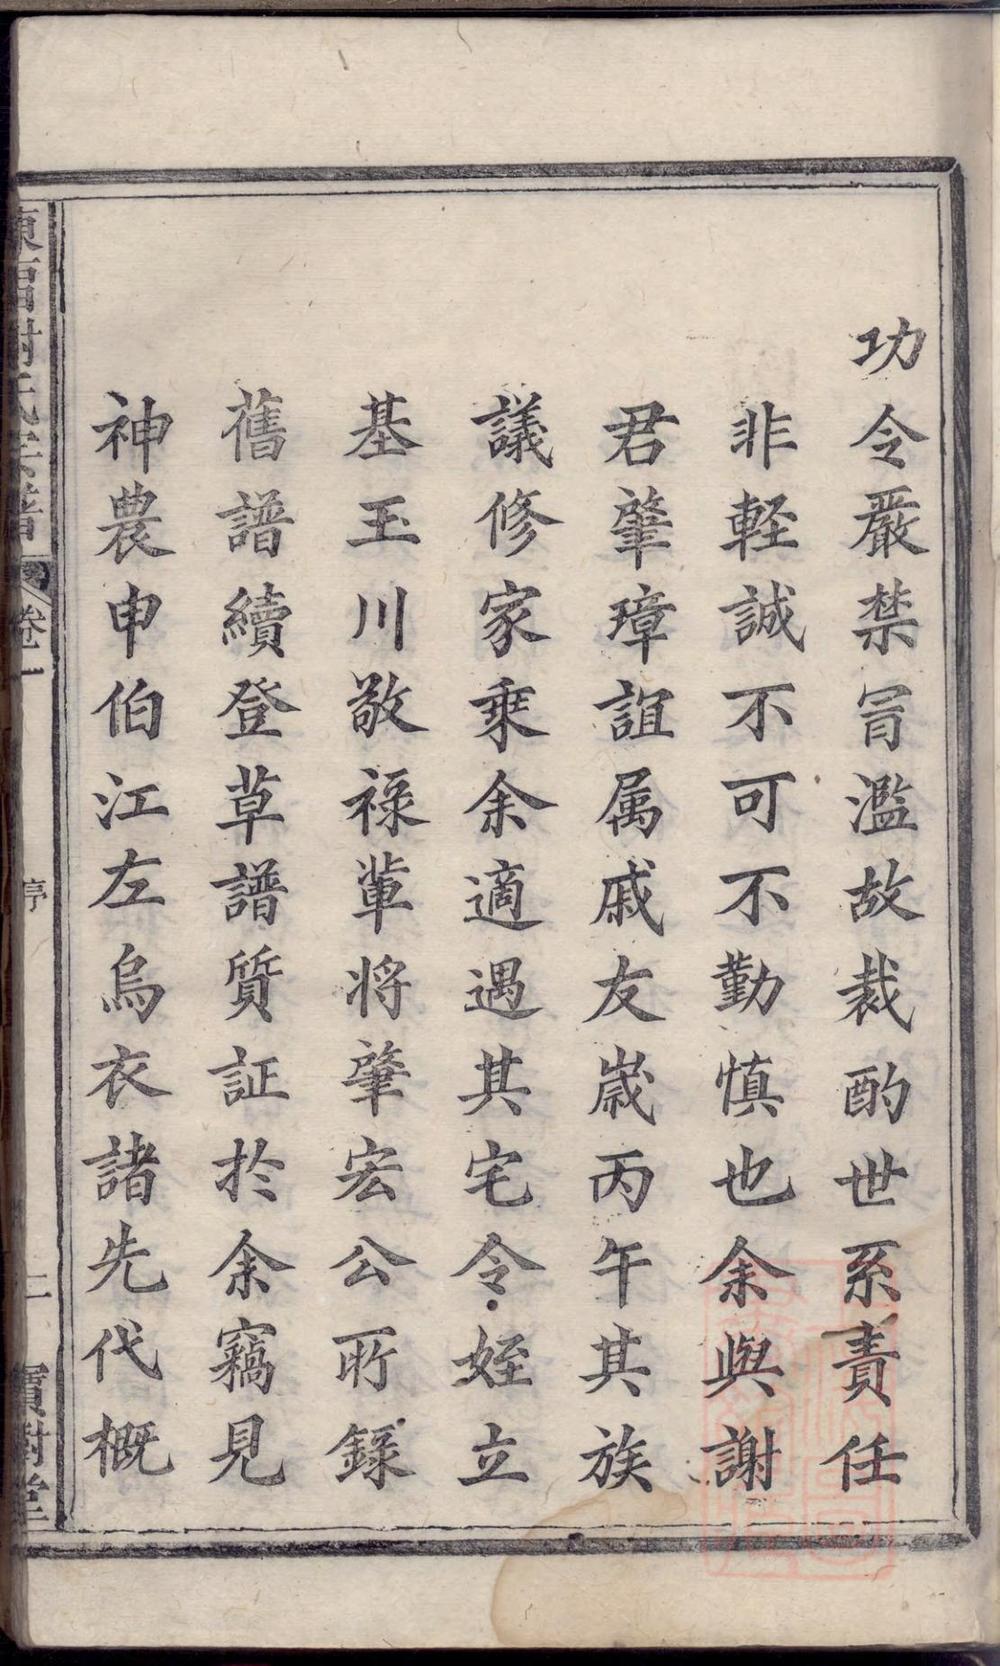 功令嚴禁冒濫故裁酌世系責任
非軽誠不可不勤慎也余與謝
君肇璋誼属戚友嵗丙午其族
議修家乘余適遇其宅令姪立
基玉川敬禄軰将肇宏公所錄
舊譜續登草譜質証於余竊見
神農申伯江左烏衣諸先代概
謝氏宗譜
卷一
序
二
寶樹堂